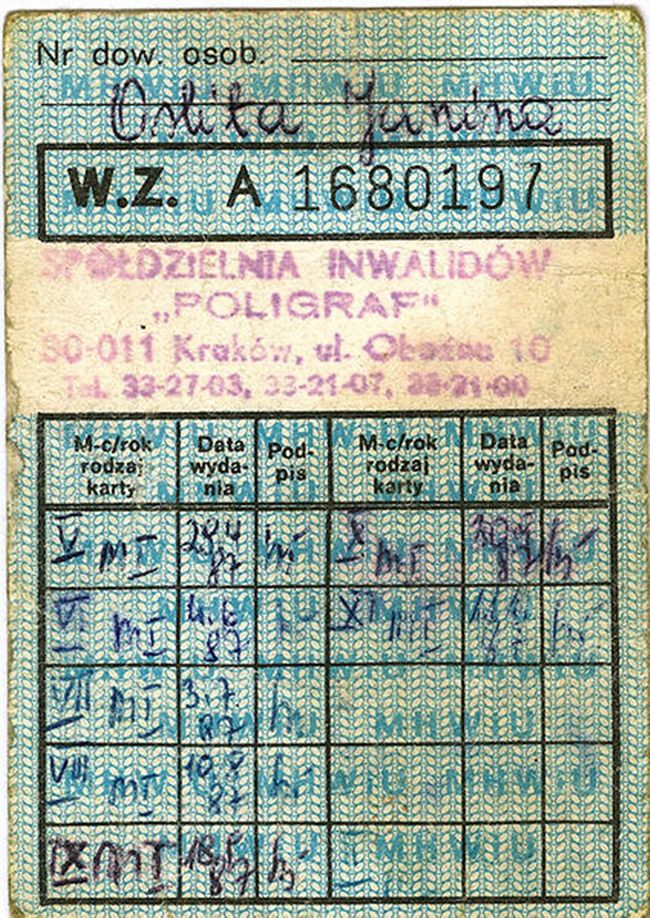 Nr dow. osob.
Janina
W.Z. A 1680197
SPÓŁDZIELNIA INWALIDÓW
„POLIGRAF"
30-011 Kraków, ul. 10
Tel. 33-27-03, 33-21-07,
M-c/rok rodzaj karty Data wyda- nia Pod- pis M-c/rok rodzaj karty Data wyda- nia Pod- pis
V MI 28.4 87 X MI 87
VI MI 4.6 87 XI MI
VII MI 3.7. 87
VIII MI 10.8 87
IX MI 87
MHWiU MHWiU